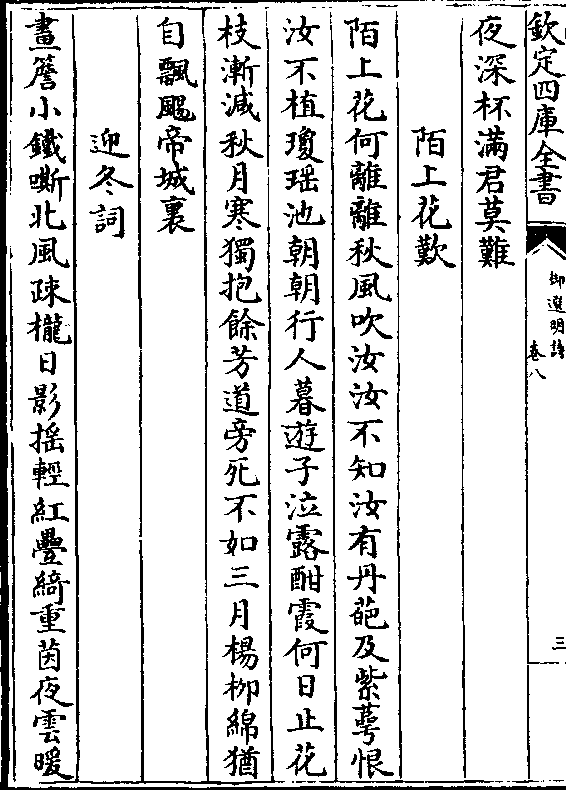 欽定四庫全書
御選明詩
卷八
三
夜深杯滿君莫難
陌上花歎
陌上花何離離秋風吹汝汝不知汝有丹葩及紫萼恨
汝不植瓊瑶池朝朝行人暮遊子泣露酣霞何日止花
枝漸減秋月寒獨抱餘芳道旁死不如三月楊柳綿猶
自飄颺帝城裏
迎冬詞
畫簷小鐵嘶北風疎櫳日影摇輕紅疊綺重茵夜雲暖